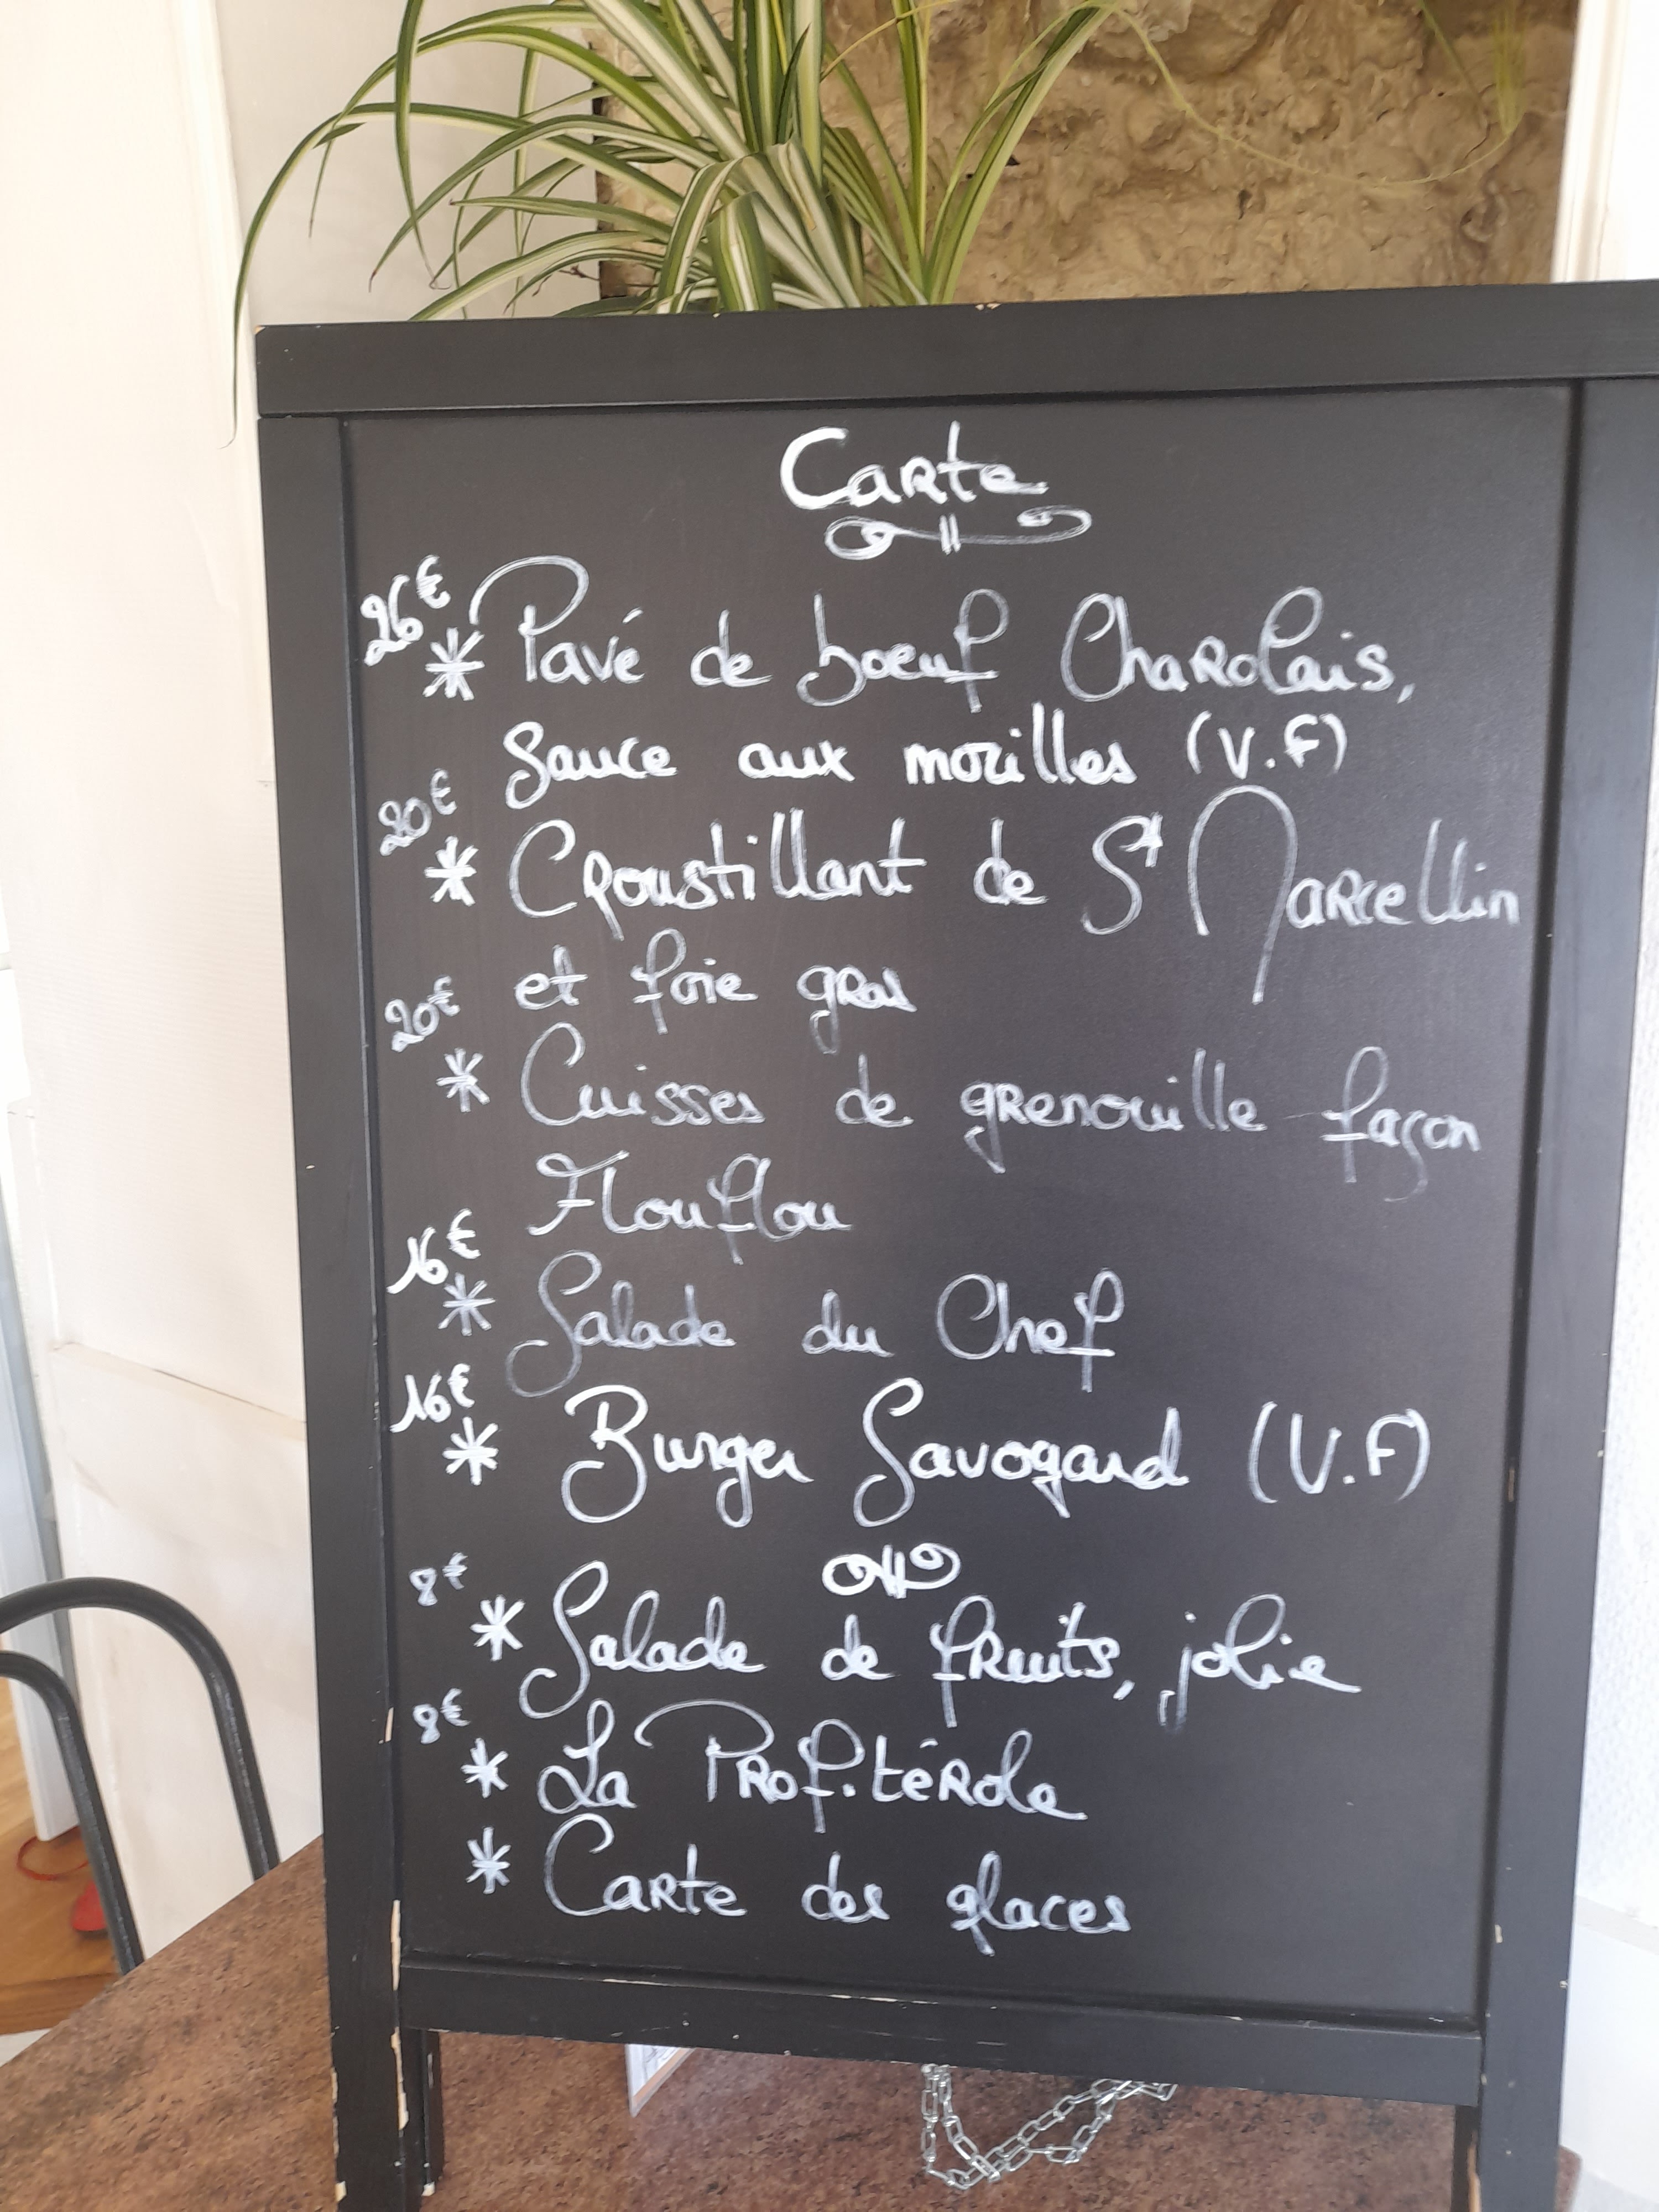 Carte
26€
* Pavé de boeuf Charolais,
Sauce aux morilles (V.F)
20€
* Croustillant de St Marcellin
et foie gras
20€
* Cuisses de grenouille façon
Flouflou
16€
* Salade du Chef
16€
* Burger Savoyard (V.F)
8€
* Salade de fruits, jolie
8€
* La Profitérole
* Carte des glaces